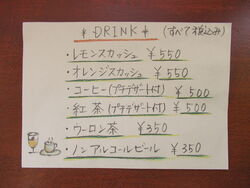 *DRINK* (すべて税込み)
・レモンスカッシュ ¥550
・オレンジスカッシュ ¥550
・コーヒー(プチデザート付) ¥500
・紅茶(プチデザート付) ¥500
・ウーロン茶 ¥350
・ノンアルコールビール ¥350